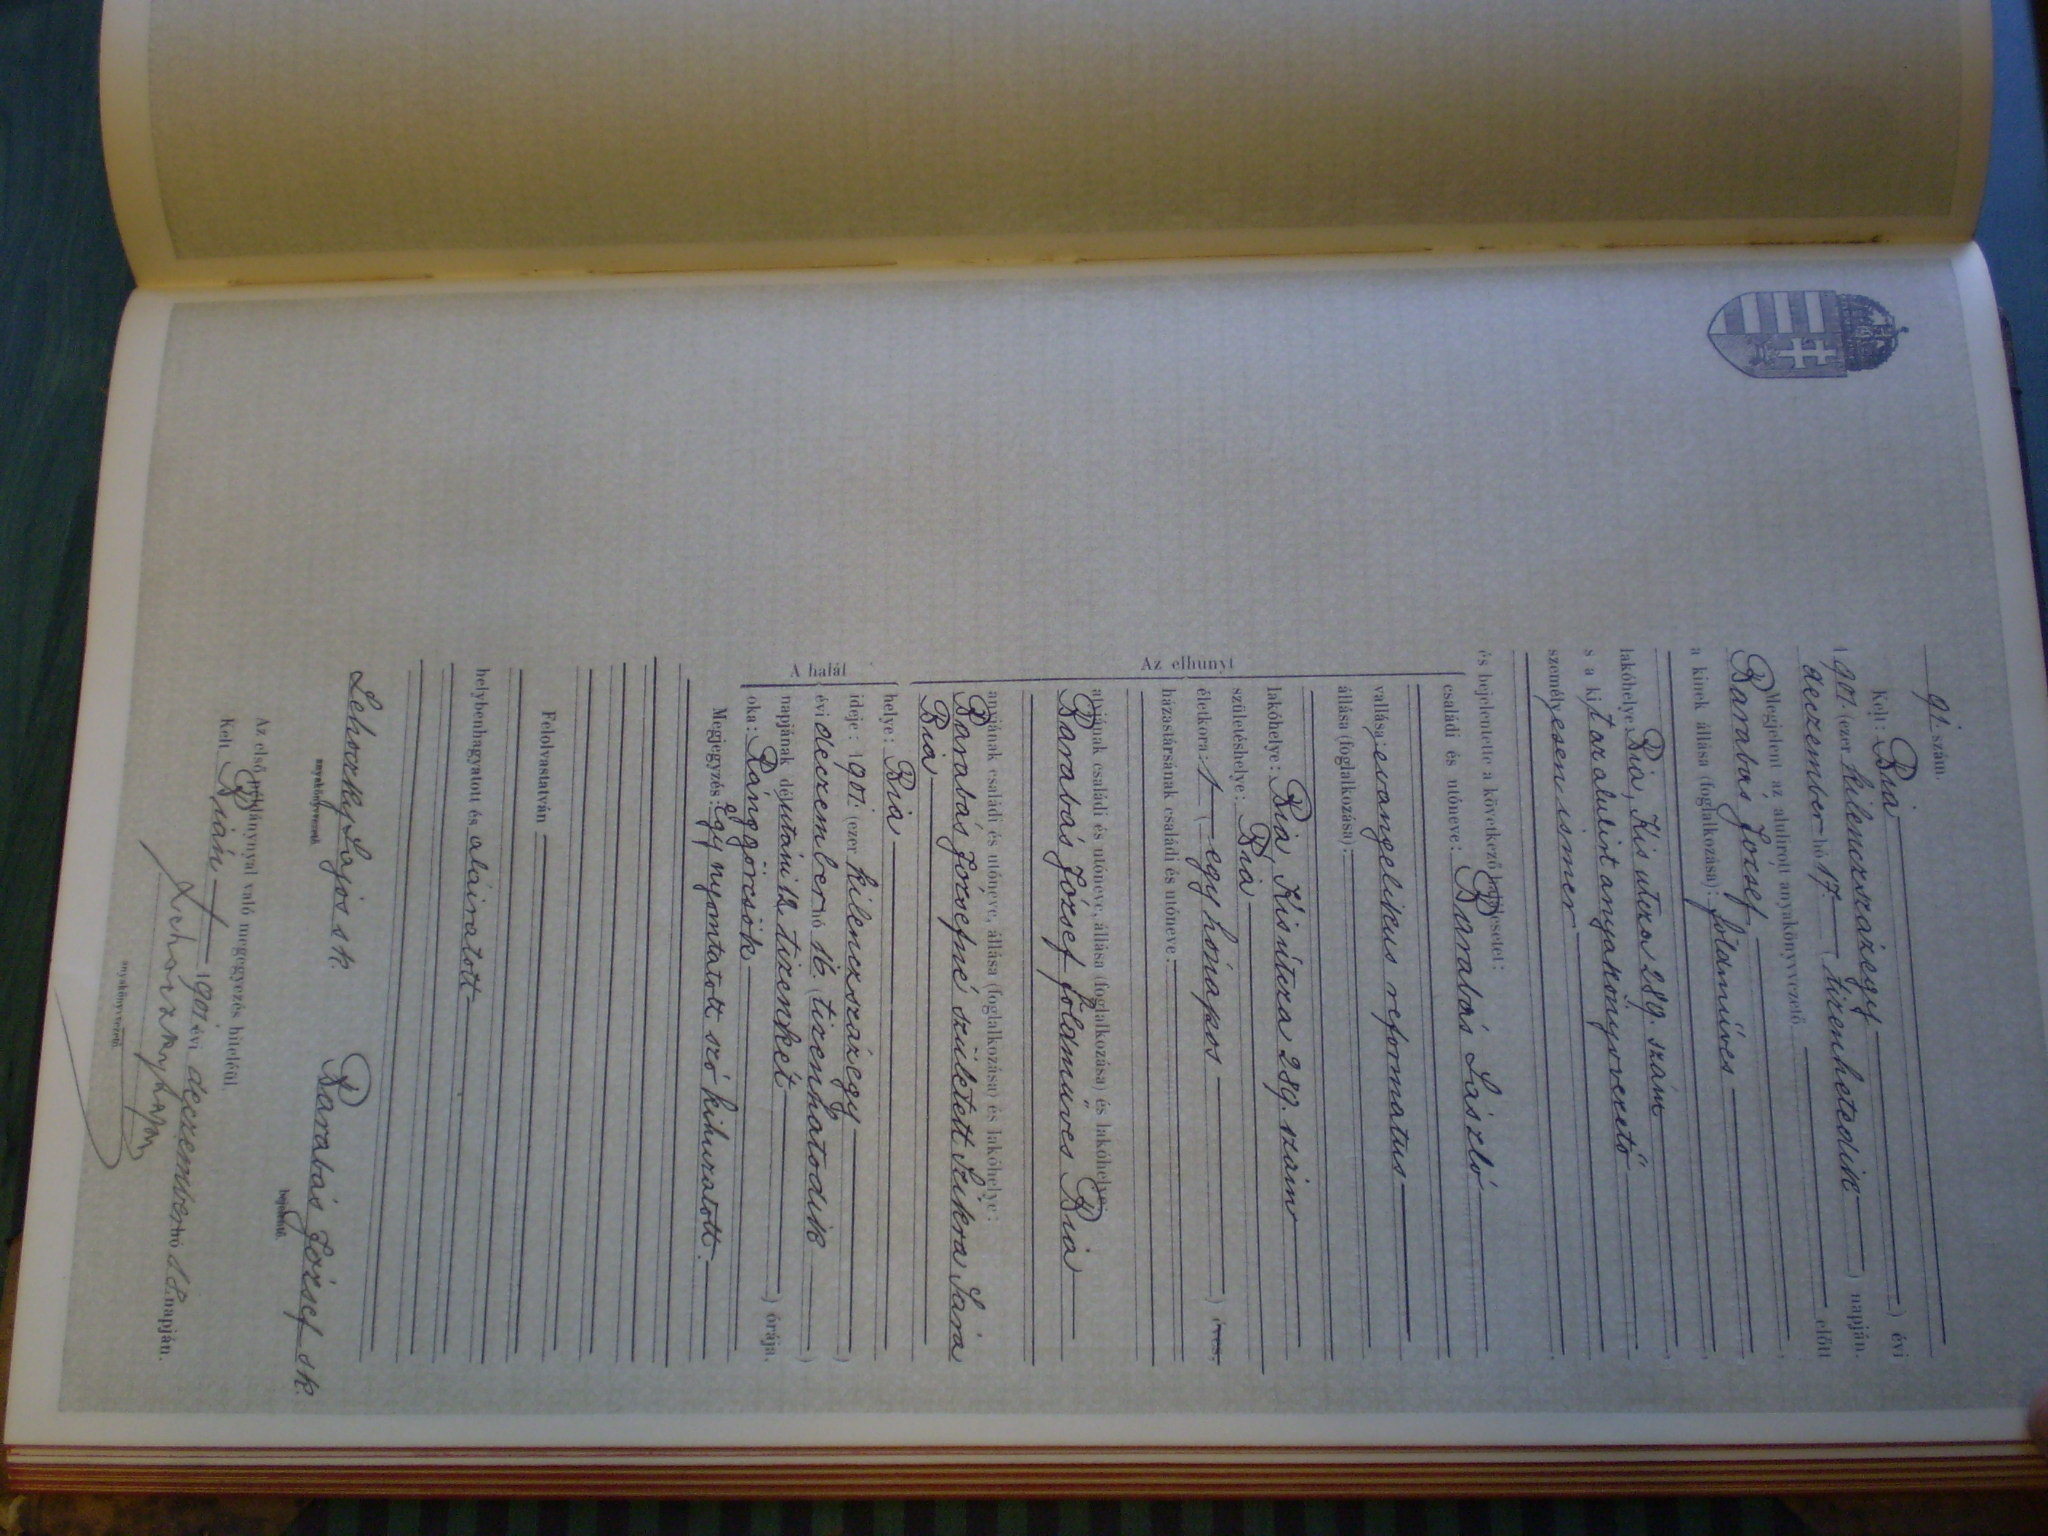 91. szám.
Kelt: Bia
1901. (ezer kilenczszázegy) évi
deczember hó 17. (tizenhetedik) napján.
Megjelent az alulirott anyakönyvvezető előtt
Barabás József,
a kinek állása (foglalkozása): földműves
lakóhelye Bia, Kis utcza 289. szám
s a kit az alulirt anyakönyvvezető
személyesen ismer
és bejelentette a következő halálesetet:
családi és utóneve: Barabás László
vallása: evangelikus reformatus
állása (foglalkozása):
lakóhelye: Bia, Kis utcza 289. szám
születéshelye: Bia
életkora: 1 (egy hónapos) éves,
házastársának családi és utóneve:
atyjának családi és utóneve, állása (foglalkozása) és lakóhelye:
Barabás József földmuves Bia
anyjának családi és utóneve, állása (foglalkozása) és lakóhelye:
Barabás Józsefné született Szikra Sára
Bia
Az elhunyt
helye: Bia
ideje: 1901. (ezer kilenczszázegy)
évi deczember hó 16. (tizenhatodik)
napjának délutáni 12 (tizenkét) órája.
oka: Ránggörcsök
A halál
Megjegyzés: Egy nyomtatott szó kihuzatott.
Felolvastatván
helybenhagyatott és aláiratott
Lehoczky Lajos sk.
anyakönyvvezető.
Barabás József sk.
bejelentő.
Az első példánynyal való megegyezés hiteléül.
Kelt Bián 1901. évi deczember hó 18. napján.
Lehoczky Lajos
anyakönyvvezető.